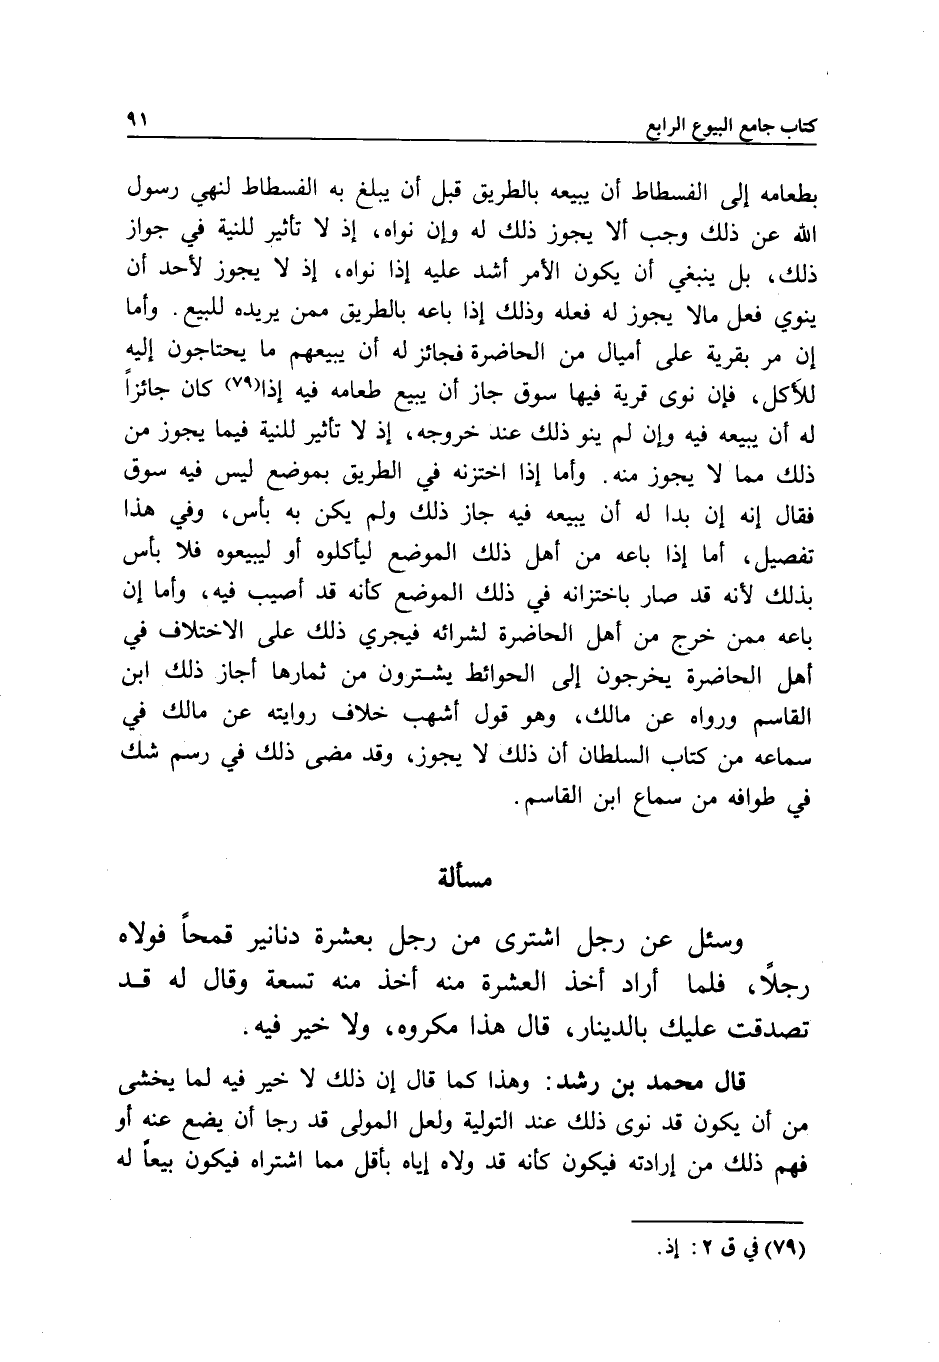 كتاب جامع البيوع الرابع ٩١
بطعامه إلى الفسطاط أن يبيعه بالطريق قبل أن يبلغ به الفسطاط لنهي رسول
الله عن ذلك وجب ألا يجوز ذلك له وإن نواه، إذ لا تأثير للنية في جواز
ذلك، بل ينبغي أن يكون الأمر أشد عليه إذا نواه، إذ لا يجوز لأحد أن
ينوي فعل مالا يجوز له فعله وذلك إذا باعه بالطريق ممن يريده للبيع. وأما
إن مر بقرية على أميال من الحاضرة فجائز له أن يبيعهم ما يحتاجون إليه
للأكل، فإن نوى قرية فيها سوق جاز أن يبيع طعامه فيه إذا(٧٩) كان جائزاً
له أن يبيعه فيه وإن لم ينو ذلك عند خروجه، إذ لا تأثير للنية فيما يجوز من
ذلك مما لا يجوز منه. وأما إذا اختزنه في الطريق بموضع ليس فيه سوق
فقال إنه إن بدا له أن يبيعه فيه جاز ذلك ولم يكن به بأس، وفي هذا
تفصيل، أما إذا باعه من أهل ذلك الموضع ليأكلوه أو ليبيعوه فلا بأس
بذلك لأنه قد صار باختزانه في ذلك الموضع كأنه قد أصيب فيه، وأما إن
باعه ممن خرج من أهل الحاضرة لشرائه فيجري ذلك على الاختلاف في
أهل الحاضرة يخرجون إلى الحوائط يشترون من ثمارها أجاز ذلك ابن
القاسم ورواه عن مالك، وهو قول أشهب خلاف روايته عن مالك في
سماعه من كتاب السلطان أن ذلك لا يجوز، وقد مضى ذلك في رسم شك
في طوافه من سماع ابن القاسم.
مسألة
وسئل عن رجل اشترى من رجل بعشرة دنانير قمحاً فولاه
رجلاً، فلما أراد أخذ العشرة منه أخذ منه تسعة وقال له قد
تصدقت عليك بالدينار، قال هذا مكروه، ولا خير فيه.
قال محمد بن رشد: وهذا كما قال إن ذلك لا خير فيه لما يخشى
من أن يكون قد نوى ذلك عند التولية ولعل المولى قد رجا أن يضع عنه أو
فهم ذلك من إرادته فيكون كأنه قد ولاه إياه بأقل مما اشتراه فيكون بيعاً له
(٧٩) في ق ٢: إذ.